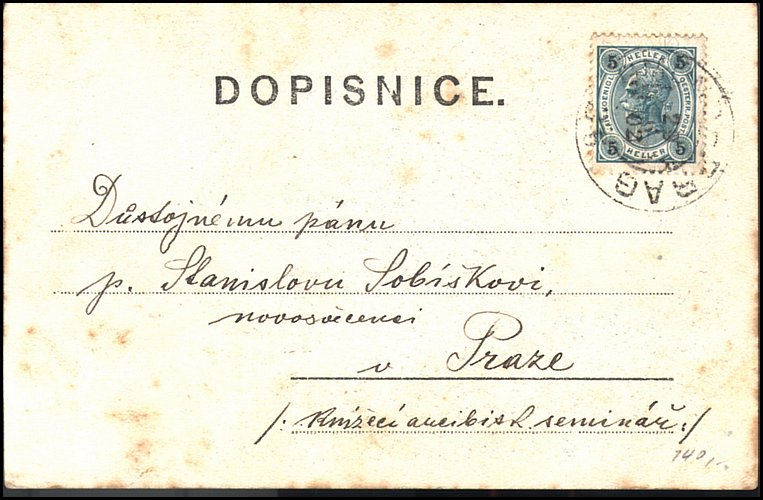 DOPISNICE.
5 HELLER 5
5 HELLER 5
PRAG
Důstojnému pánu
p. Stanislovu Sobíškovi,
novosvěcenci
v Praze
/: Knížecí arcibisk. seminář :/
140,-